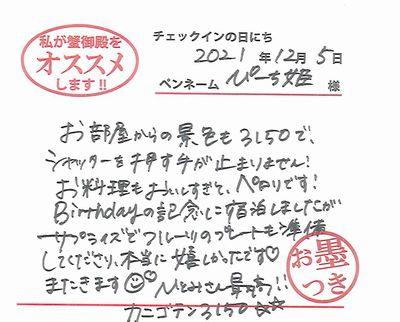 私が蟹御殿を
オススメ
します!!
チェックインの日にち
2021 年 12月 5日
ペンネーム ぴーち姫 様
お部屋からの景色も3150で、
シャッターを押す手が止まりません!
お料理もおいしすぎて、ペロリです!
Birthdayの記念に宿泊しましたが
サプライズでフルーツのプレートも準備
してくださり、本当に嬉しかったです♡
またきます☺♡ 最高!!
カニゴテン3150 ☆☆
お墨
つき